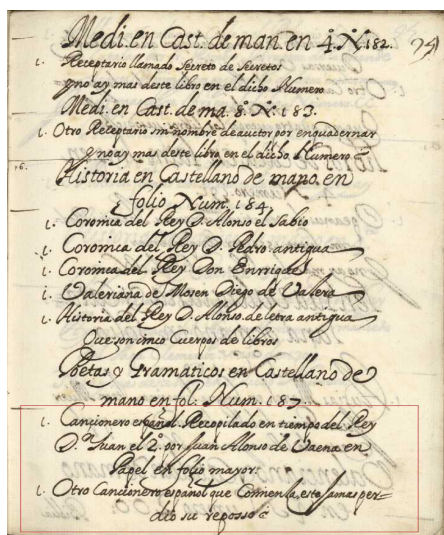 Medi. en Cast. de man. en 4. N. 182.
1. Receptario llamado Secreto de Secretos
y no ay mas deste libro en el dicho Numero
Medi. en Cast. de ma. 8. N. 183.
1. Otro Receptario sin nombre de auctor por enquadernar
y no ay mas deste libro en el dicho Numero
Historia en Castellano de mano en
folio Num. 184.
1. Coronica del Rey D. Alonso el Sabio
1. Coronica del Rey D. Pedro antigua
1. Coronica del Rey Don Enrrique
1. Valeriana de Mosen Diego de Valera
1. Historia del Rey D. Alonso de letra antigua
Que son cinco Cuerpos de libros
Poetas y Gramaticos en Castellano de
mano en fol. Num. 187.
1. Cancionero español Recopilado en tiempo del Rey
D. Juan el 2º. por Juan Alonso de Vaena en
Papel en folio mayor.
1. Otro Cancionero español que Comienza, esta jamas per-
dio su reposso